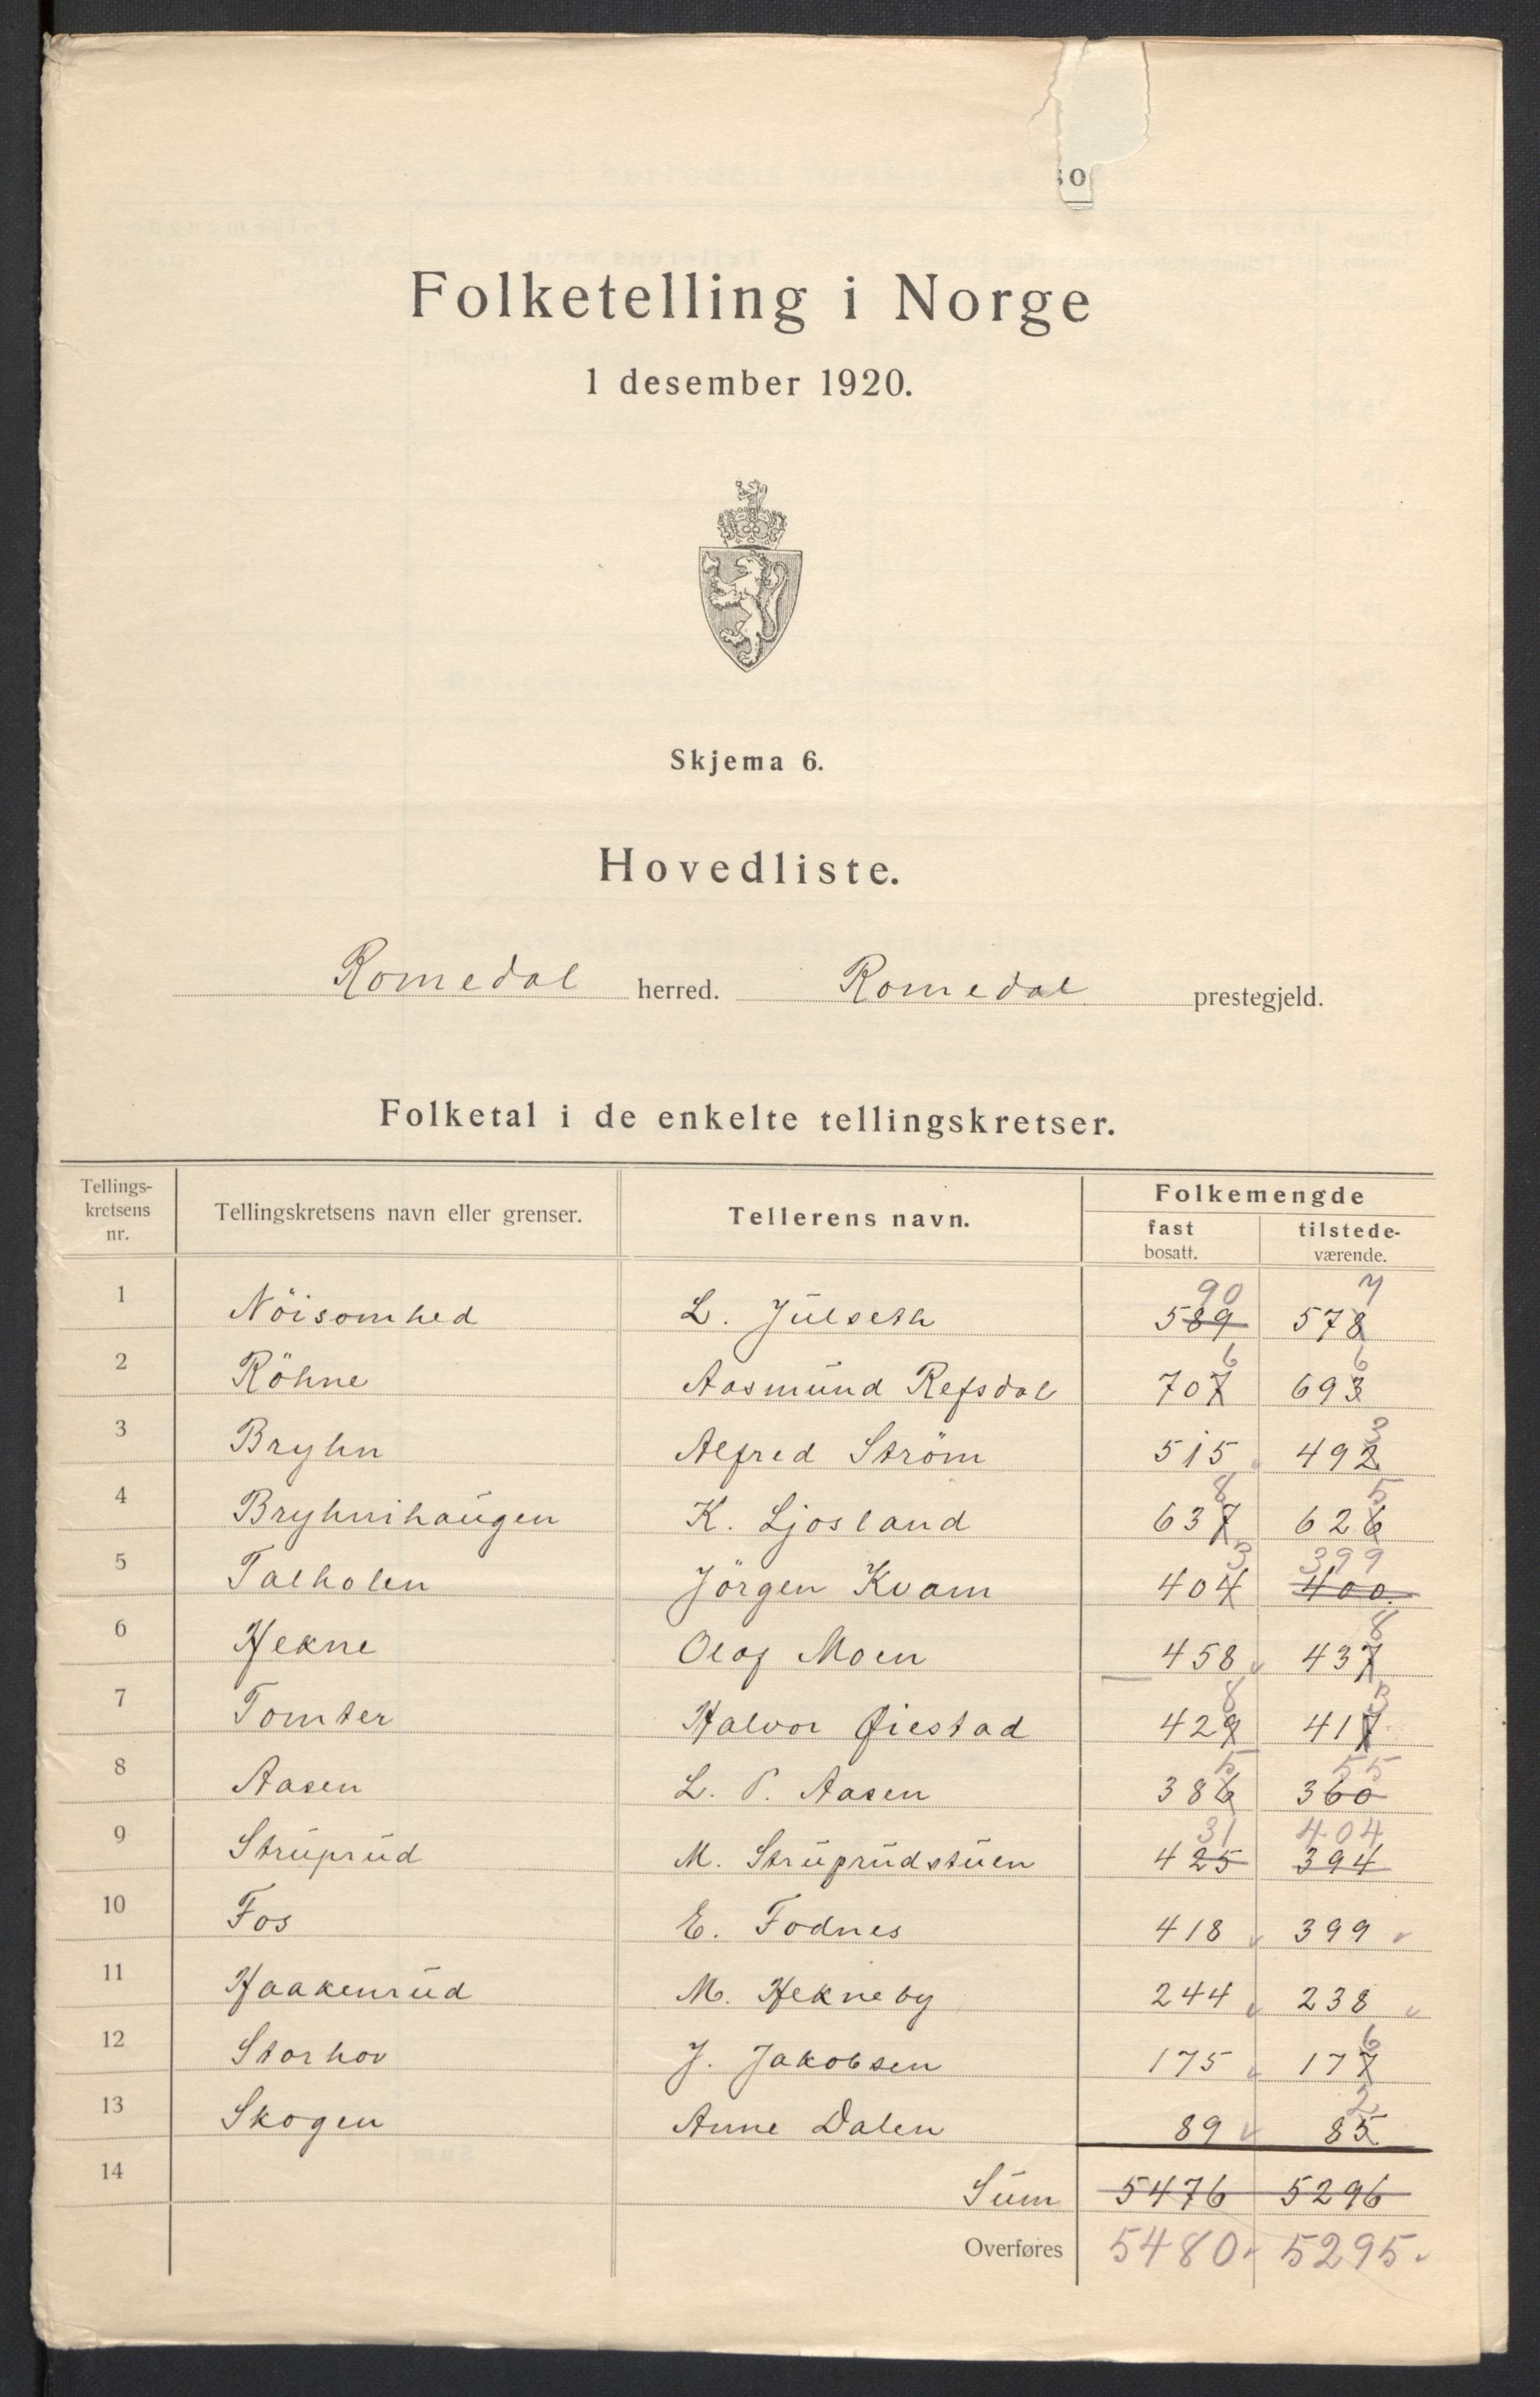 so
Folketelling i Norge
1 desember 1920.
Skjema 6.
Hovedliste.
Romedal herred. Romedal prestegjeld.
Folketal i de enkelte tellingskretser.
Tellings-kretsens nr. Tellingskretsens navn eller grenser. Tellerens navn. Folkemengde
fast bosatt. tilstede-værende.
90 7
1 Nöisomhed L. Julseth 589 578
6 6
2 Röhne Aasmund Refsdal 707 693
3
3 Bryhn Alfred Ström 515 492
8 5
4 Bryhnihaugen K. Ljosland 637 626
3 399
5 Talholen Jörgen Kvam 404 400
8
6 Hekne Olaf Moen 458 437
8 3
7 Tomter Halvor Øiestad 429 417
5 55
8 Aasen L. P. Aasen 386 360
31 404
9 Struprud M. Struprudstuen 425 394
10 Fos E. Fodnes 418 399
11 Haakenrud M. Hekneby 244 238
6
12 Storhov J. Jakobsen 175 177
2
13 Skogen Anne Dalen 89 85
14 Sum 5476 5296
Overføres 5480 5295